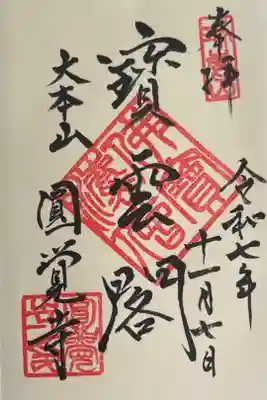 奉拝
令和七年
十一月七日
寶雲閣
大本山
圓覚寺